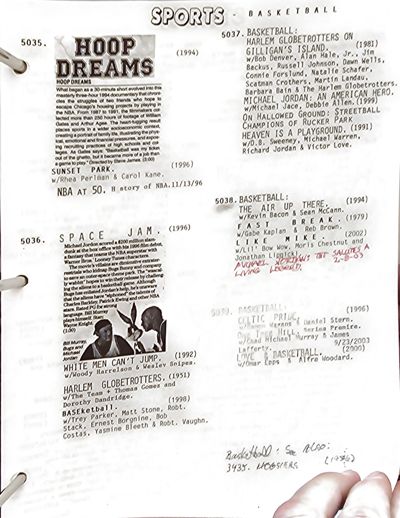 SPORTS - BASKETBALL
5035.
HOOP
DREAMS
(1994)
HOOP DREAMS
What began as a 30-minute short evolved into this
masterly three-hour 1994 documentary that chron-
icles the struggles of two friends who hope to
escape Chicago's housing projects by playing in
the NBA. From 1987 to 1991, the filmmakers col-
lected more than 250 hours of footage of William
Gates and Arthur Agee. The heart-tugging result
places sports in a wider socioeconomic context,
creating a portrait of family life, illustrating politi-
cal, emotional and financial pressures, and expos-
ing recruiting practices of high schools and col-
leges. As Gates says: "Basketball was my ticket
out of the ghetto, but it became more of a job than
a game to play." (Directed by Steve James.) (3:00)
SUNSET PARK. (1996)
w/Rhea Perlman & Carol Kane.
NBA at 50. History of NBA.11/13/96
5036.
SPACE JAM.
(1996)
Michael Jordan scored a $200 million slam-
dunk at the box office with his 1996 film debut,
a fantasy that teams the NBA superstar with
Warner Bros. Looney Tunes characters.
The movie's villains are diminutive creatures
who kidnap Bugs Bunny and company
to save an outer-space theme park. The "wascally
wabbit" hopes to win their release by challenging
the aliens to a basketball game. Although
Bugs has enlisted Jordan's help, he's unaware
that the aliens have "siphoned" the talents of
Charles Barkley, Patrick Ewing and other NBA
stars. Rated PG for strong
Bill Murray
plays himself. Stan:
Wayne Knight.
(1:30)
Bill Murray,
Bugs and
Michael
Jordan
WHITE MEN CAN'T JUMP. (1992)
w/Woody Harrelson & Wesley Snipes.
HARLEM GLOBETROTTERS. (1951)
w/The Team + Thomas Gomez and
Dorothy Dandridge. (1998)
BASEketball.
w/Trey Parker, Matt Stone, Robt.
Stack, Ernest Borgnine, Bob
Costas, Yasmine Bleeth & Robt. Vaughn.
5037.
BASKETBALL:
HARLEM GLOBETROTTERS ON
GILLIGAN'S ISLAND. (1981)
w/Bob Denver, Alan Hale, Jr., Jim
Backus, Russell Johnson, Dawn Wells,
Connie Forslund, Natalie Schafer,
Scatman Crothers, Martin Landau,
Barbara Bain & The Harlem Globetrotters.
MICHAEL JORDAN: AN AMERICAN HERO.
w/Michael Jace, Debbie Allen.(1999)
ON HALLOWED GROUND: STREETBALL
CHAMPIONS OF RUCKER PARK
HEAVEN IS A PLAYGROUND. (1991)
w/D.B. Sweeney, Michael Warren,
Richard Jordan & Victor Love.
5038.
BASKETBALL:
THE AIR UP THERE. (1994)
w/Kevin Bacon & Sean McCann.
FAST BREAK. (1979)
w/Gabe Kaplan & Reb Brown.
LIKE MIKE. (2002)
w/Lil' Bow Wow, Moris Chestnut and
Jonathan Lipnicki.
MICHAEL JORDAN: TNT SALUTES A
LIVING LEGEND. 2-8-03
5039.
BASKETBALL:
CELTIC PRIDE. (1996)
Daniel Stern.
HILL: Series Premire.
w/Chad Michael Murray & James
Lafferty. 9/23/2003
LOVE & BASKETBALL. (2000)
w/Omar Epps & Alfre Woodard.
Basketball: See Also:
3435. HOOSIERS (1986)